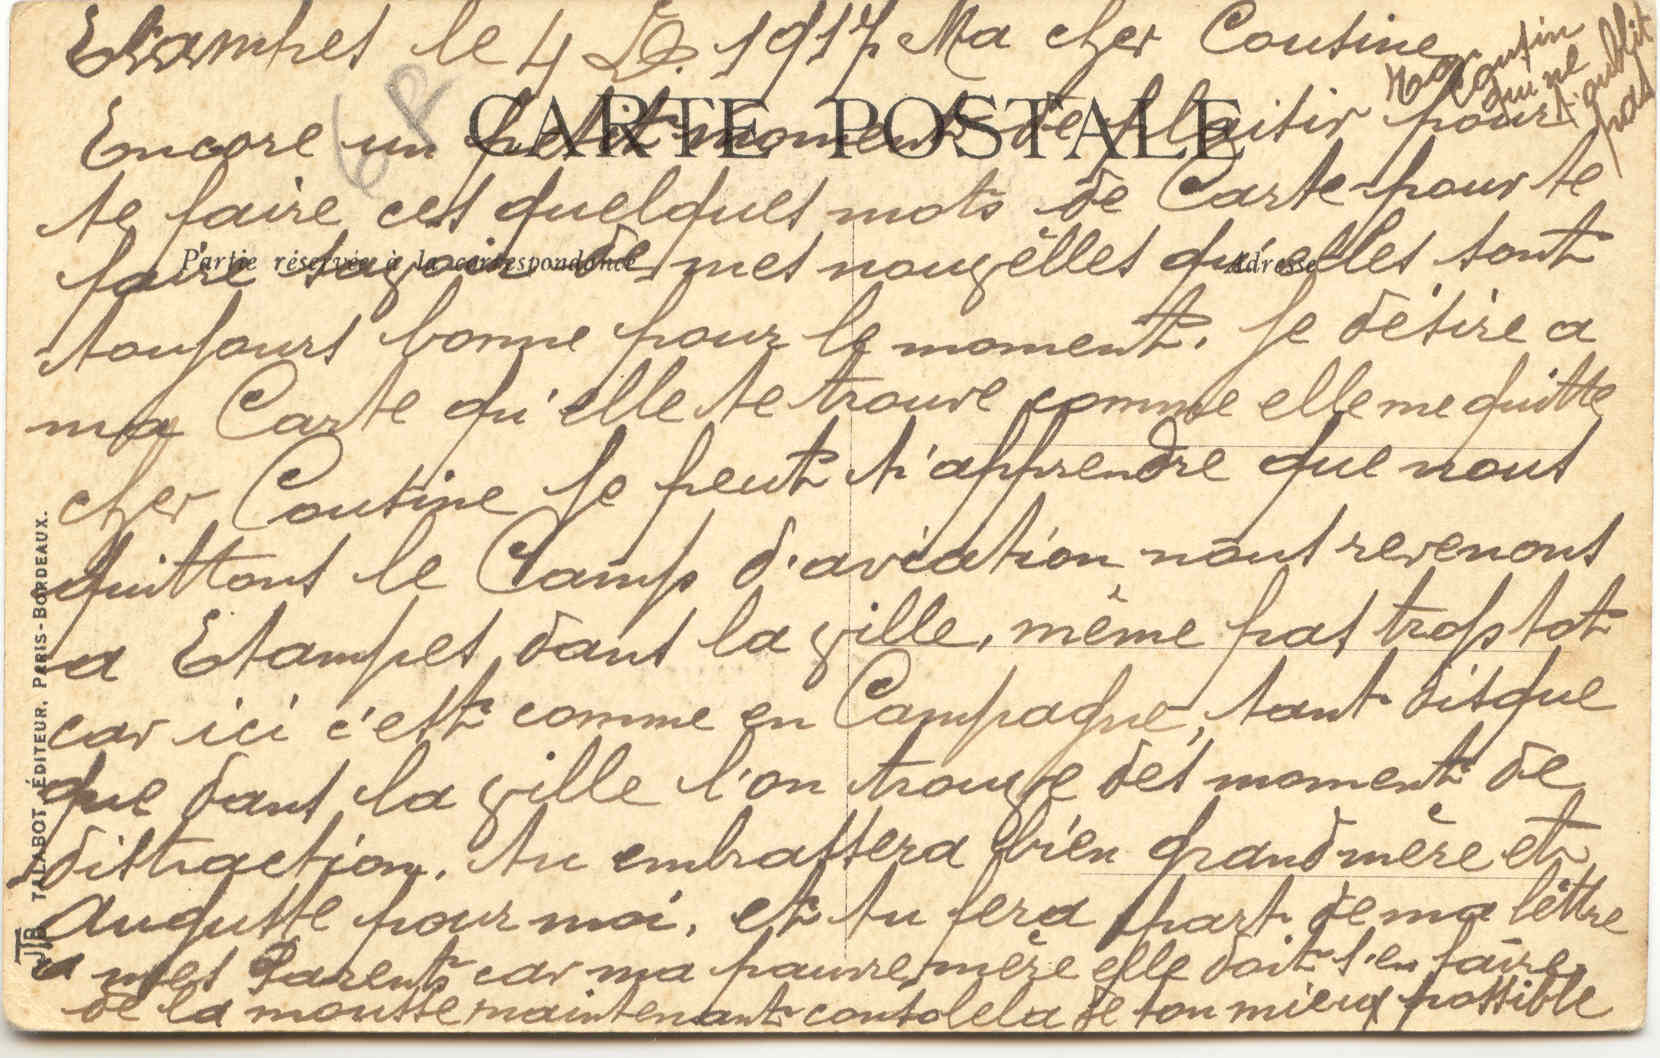 Etampes le 4 D. 1917 Ma cher Cousine
Encore un petit moment de plaisir pour
te faire ces quelques mots de Carte pour te
faire savoir de mes nouvelles qu'elles sont
toujours bonne pour le moment. Je désire a
ma Carte qu'elle te trouve comme elle me quitte
cher Cousine Je peut t'apprendre que nous
quittons le Camp d'aviation nous revenons
a Etampes dans la ville, même pas trop tot
car ici c'est comme en Campagne, tant disque
que dans la ville l'on trouve des moment de
distraction. tu embrassera bien grand mère et
Auguste pour moi, et tu fera part de ma lèttre
a mes Parents car ma pauvre mère elle doit s'en faire
de la mousse maintenant console la de ton mieux possible
Ton Cousin
qui ne
t'oublit
pas
6P
CARTE POSTALE
Partie réservée à la correspondance
Adresse
JTB TALABOT, ÉDITEUR, PARIS-BORDEAUX.